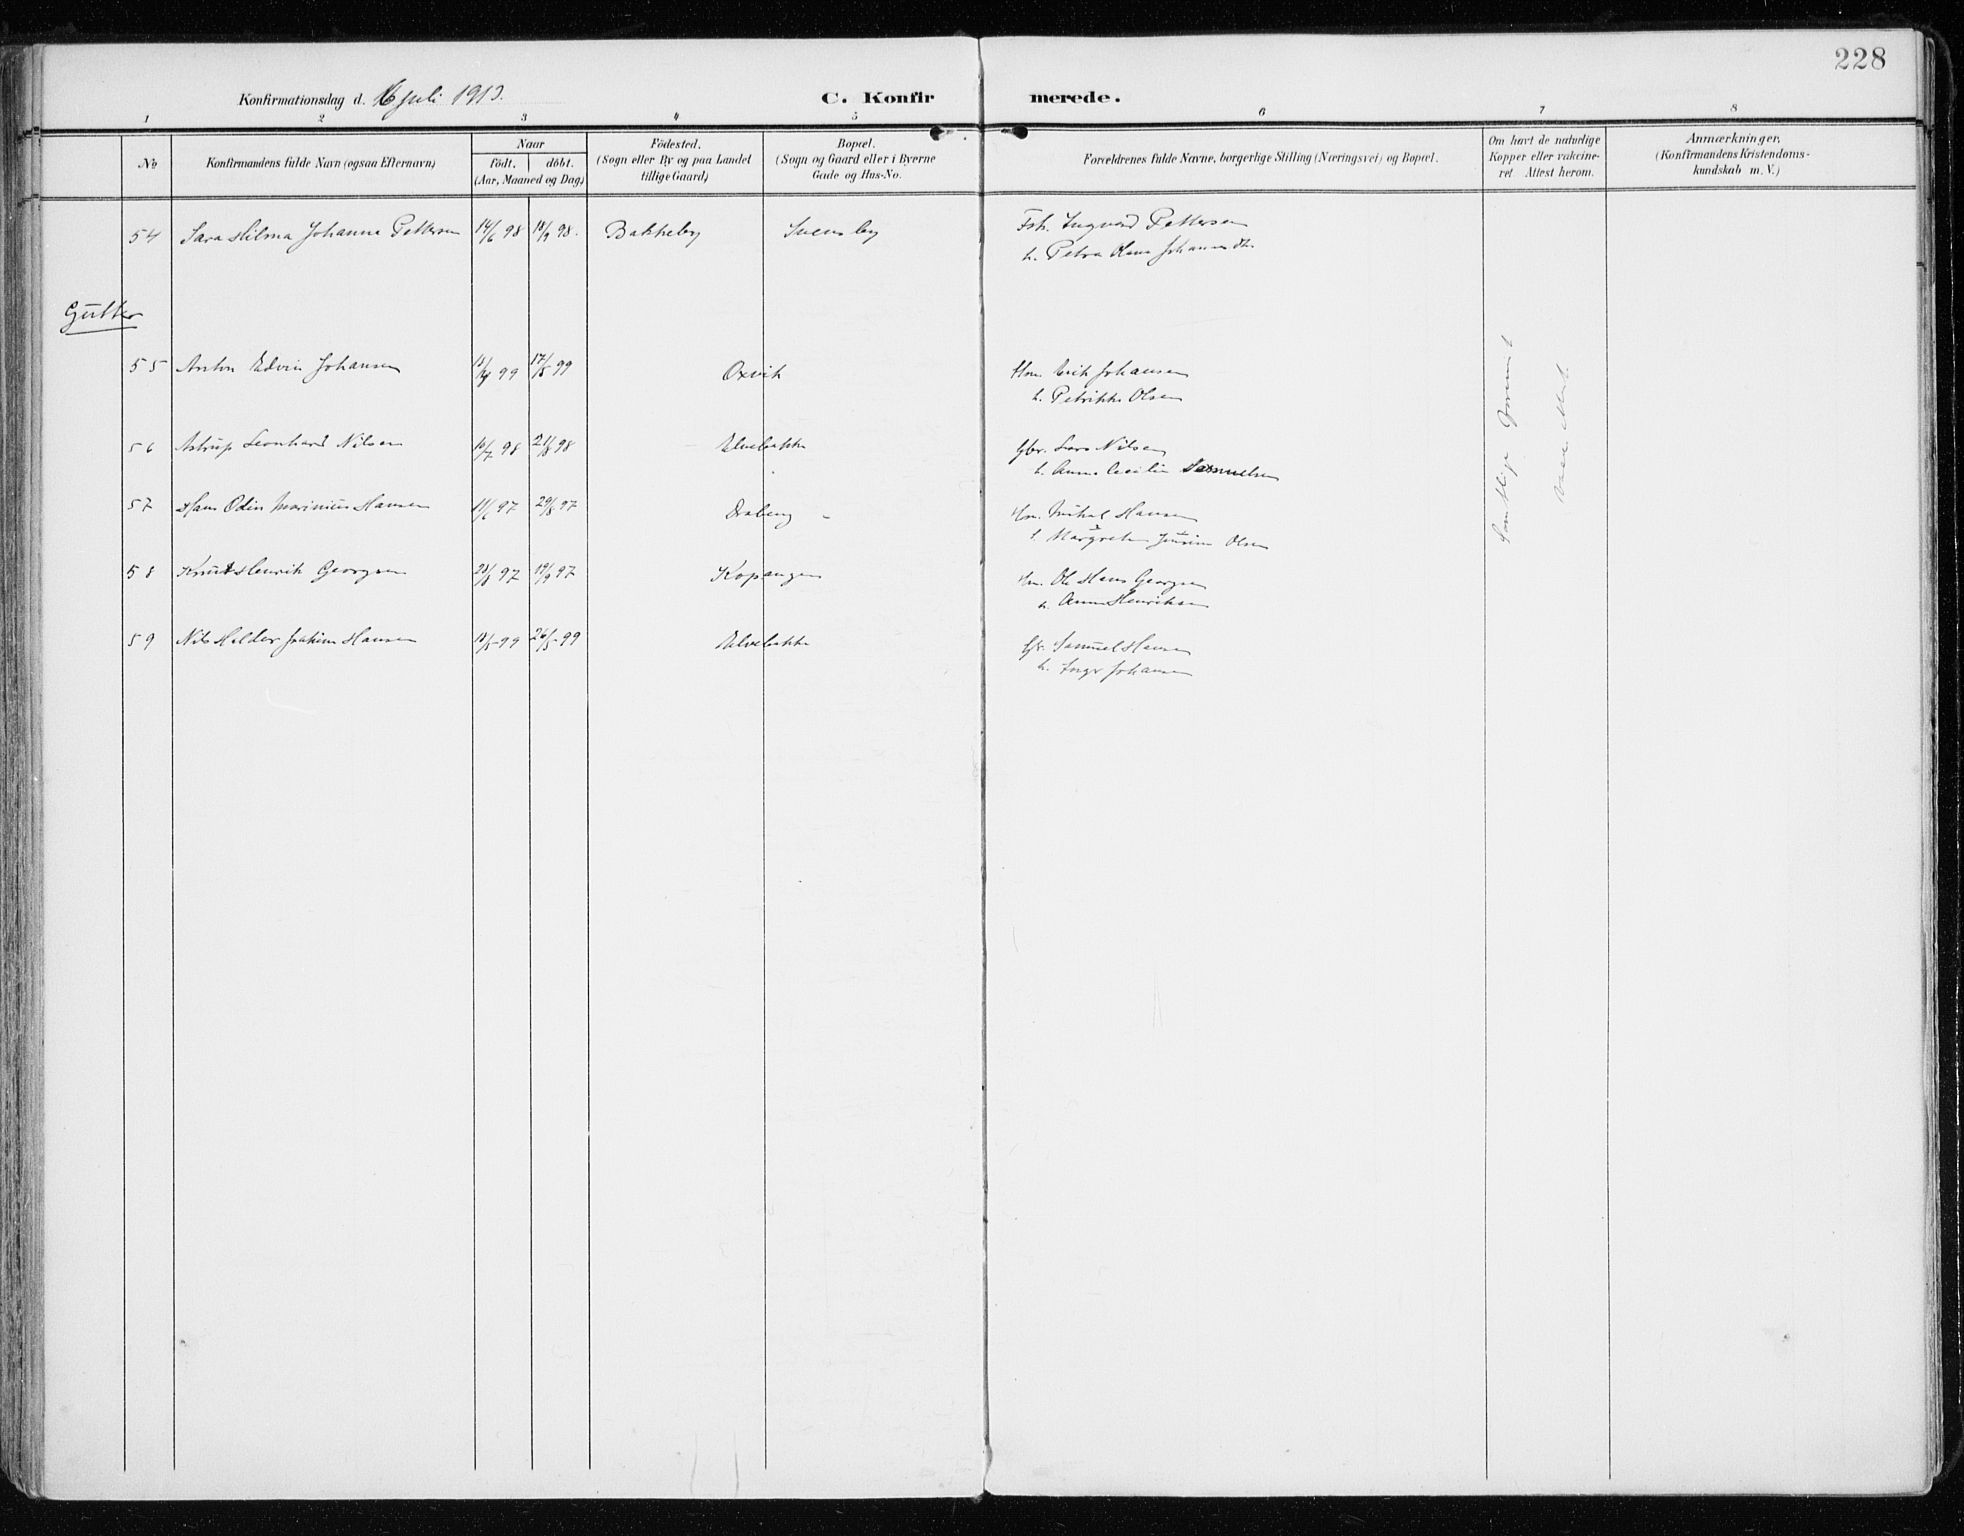 228
Konfirmationsdag d. 6 juli 1913.
C. Konfirmerede.
1 2 3 4 5 6 7 8
No
Konfirmandens fulde Navn (ogsaa Efternavn)
Naar
födt. döbt.
(Aar, Maaned og Dag)
Födested.
(Sogn eller By og paa Landet
tillige Gaard)
Bopæl.
(Sogn og Gaard eller i Byerne
Gade og Hus-No.
Forældrenes fulde Navne, borgerlige Stilling (Næringsvei) og Bopæl.
Om havt de naturlige
Kopper eller vakcine-
ret Attest herom.
Anmærkninger.
(Konfirmandens Kristendoms-
kundskab m. V.)
54 Sara Hilma Johanne Pettersen 14/6 98 18/9 98. Bakkeby Svensby Fsk. Ingvard Pettersen
h. Petra Johansdtr.
Gutter
55 Anton Edvin Johansen 99 17/5 99 Oxvik Erik Johansen
h. Petrikke Olsen
56 Astrup Leonhard Nilsen 10/7 98 21/8 98 Elvebakke Gbr. Lars Nilsen
h. Anna Cecilie Samuelsen
57 Hans Odin Marinius Hansen 11/6 97 29/8 97 Mikal Hansen
Margrete Olsen
58 Knut Henrik Georgsen 23/8 97 19/9 97 Kopangen Ole Hans Georgsen
h. Anna Henriksen
59 Nils Halder Joakim Hansen 13/5 99 26/5 99 Elvebakke Samuel Hansen
h. Inger Johansen
Samtlige